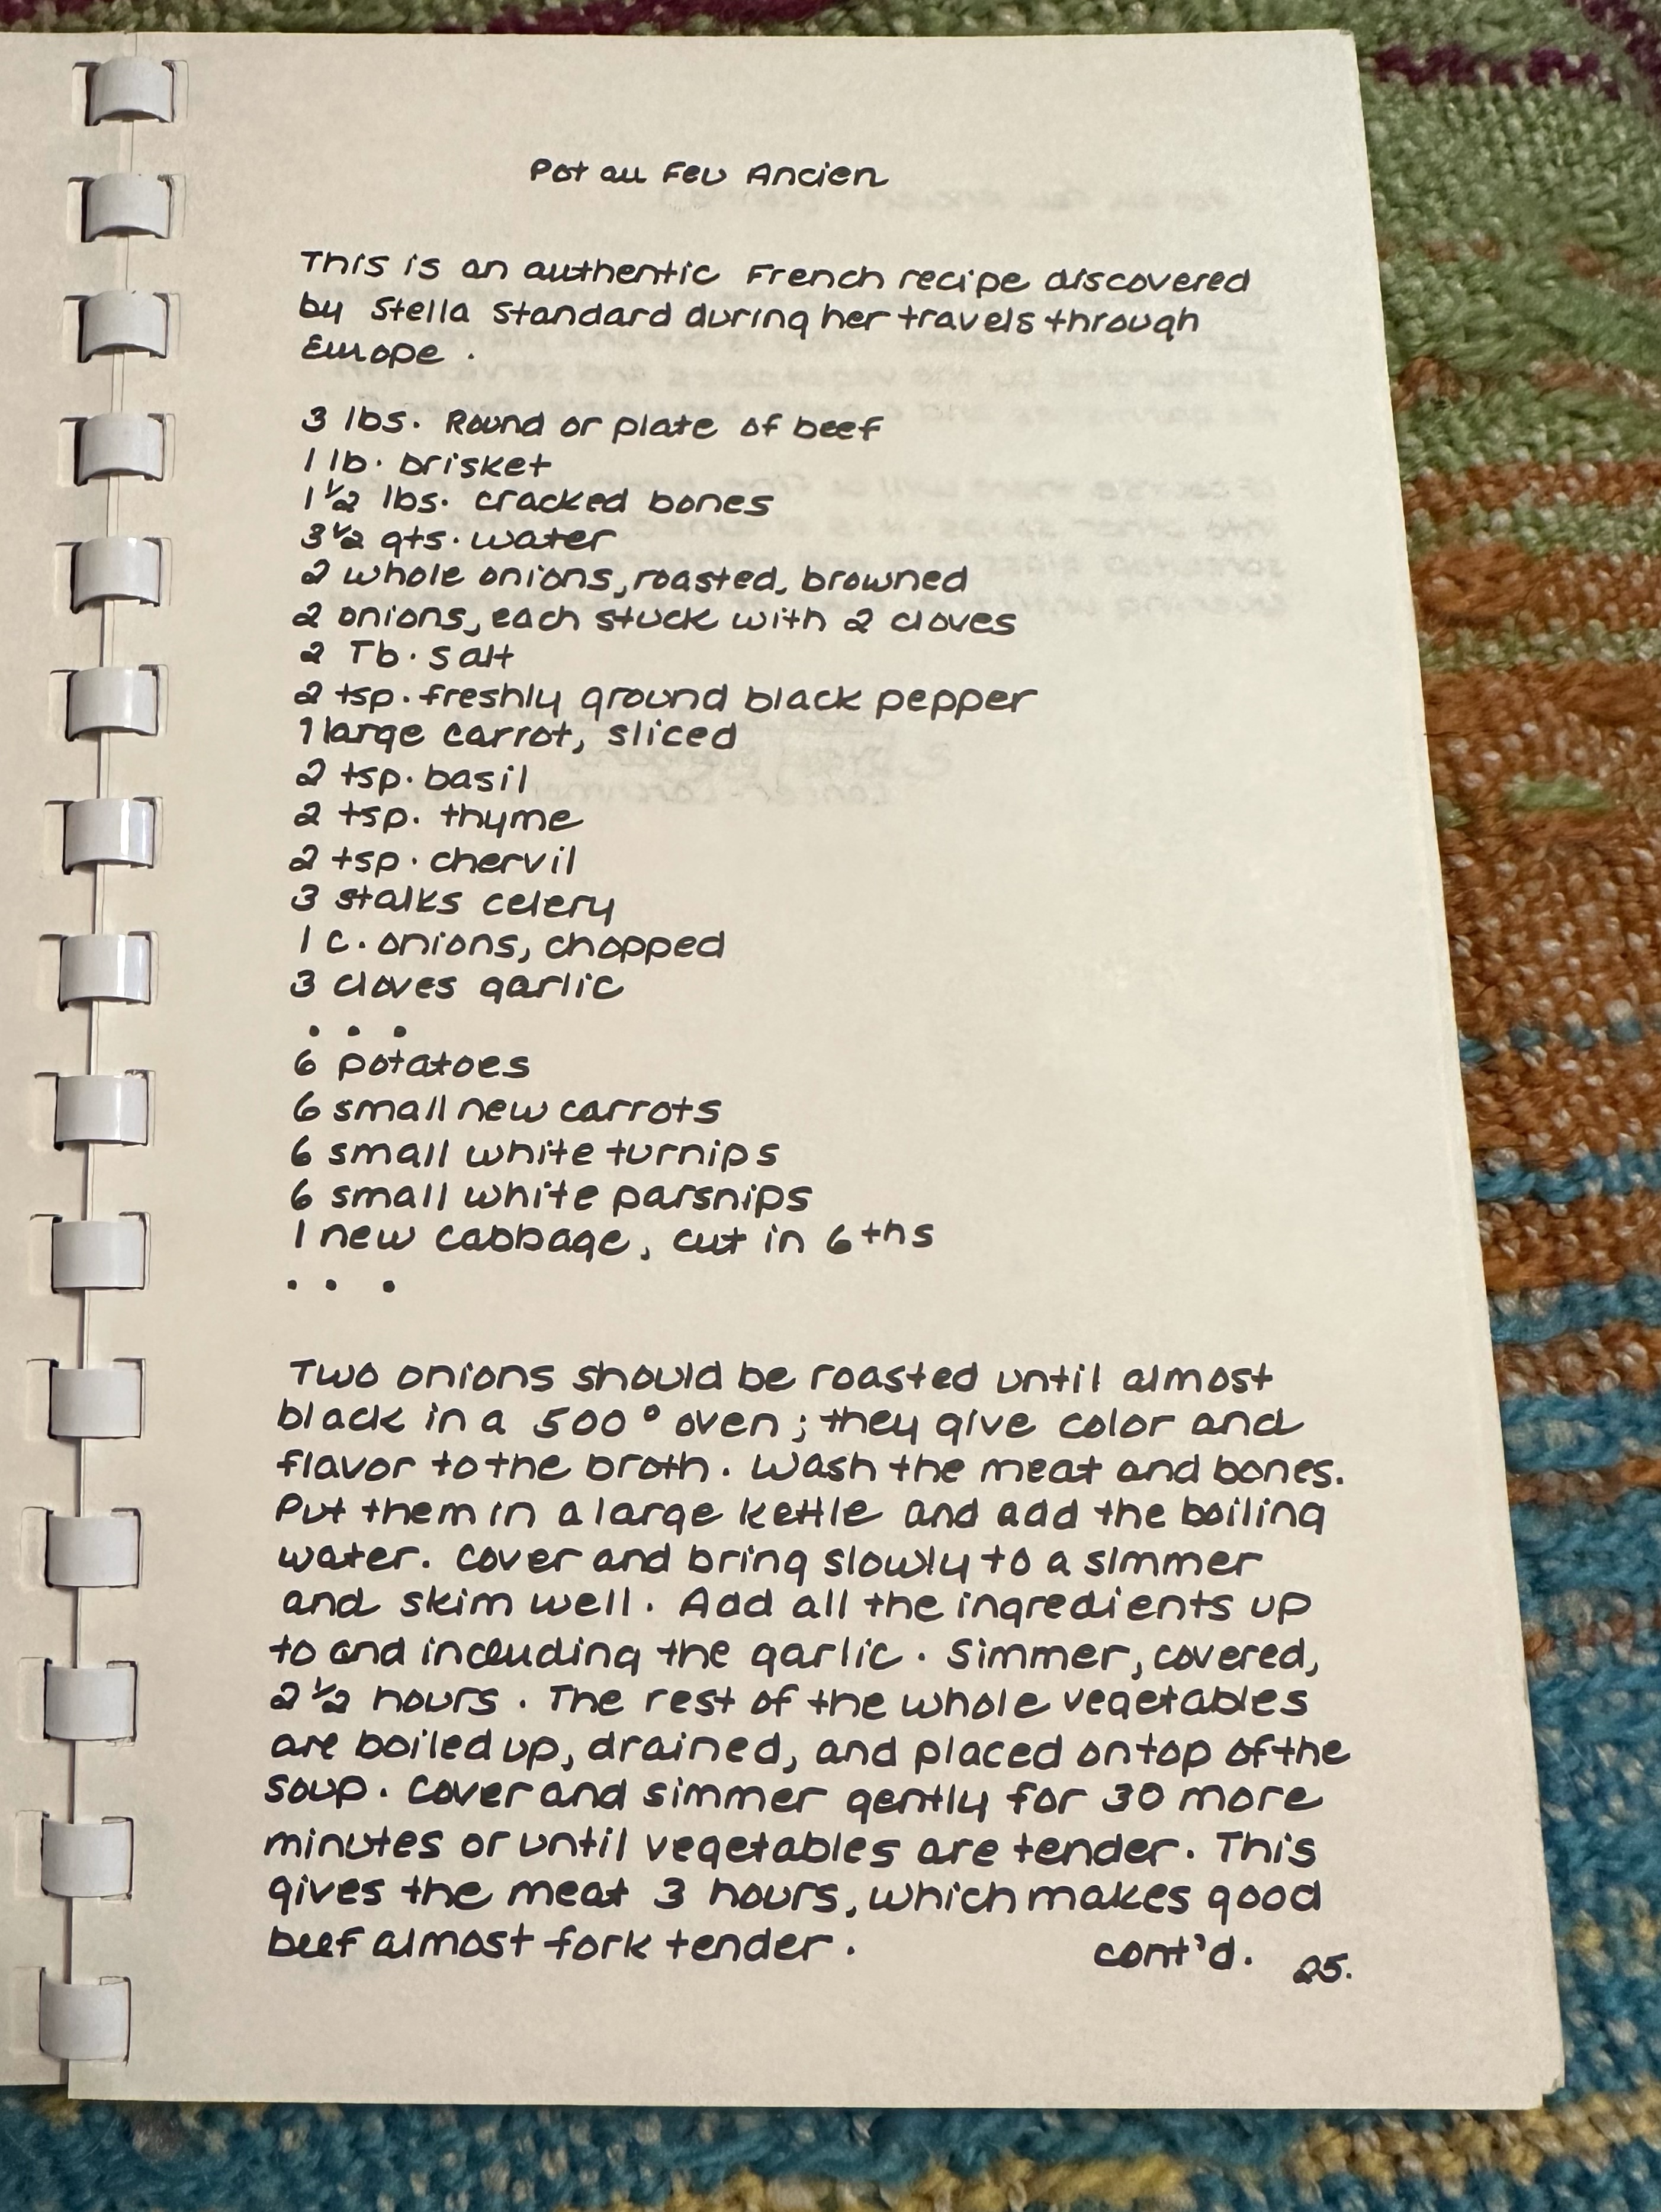 Pot au Feu Ancien
This is an authentic French recipe discovered
by Stella Standard during her travels through
Europe.
3 lbs. Round or plate of beef
1 lb. brisket
1 1/2 lbs. cracked bones
3 1/2 qts. water
2 whole onions, roasted, browned
2 onions, each stuck with 2 cloves
2 Tb. salt
2 tsp. freshly ground black pepper
1 large carrot, sliced
2 tsp. basil
2 tsp. thyme
2 tsp. chervil
3 stalks celery
1 c. onions, chopped
3 cloves garlic
. . .
6 potatoes
6 small new carrots
6 small white turnips
6 small white parsnips
1 new cabbage, cut in 6ths
. . .
Two onions should be roasted until almost
black in a 500° oven; they give color and
flavor to the broth. Wash the meat and bones.
Put them in a large kettle and add the boiling
water. Cover and bring slowly to a simmer
and skim well. Add all the ingredients up
to and including the garlic. Simmer, covered,
2 1/2 hours. The rest of the whole vegetables
are boiled up, drained, and placed on top of the
soup. Cover and simmer gently for 30 more
minutes or until vegetables are tender. This
gives the meat 3 hours, which makes good
beef almost fork tender.
cont'd. 25.